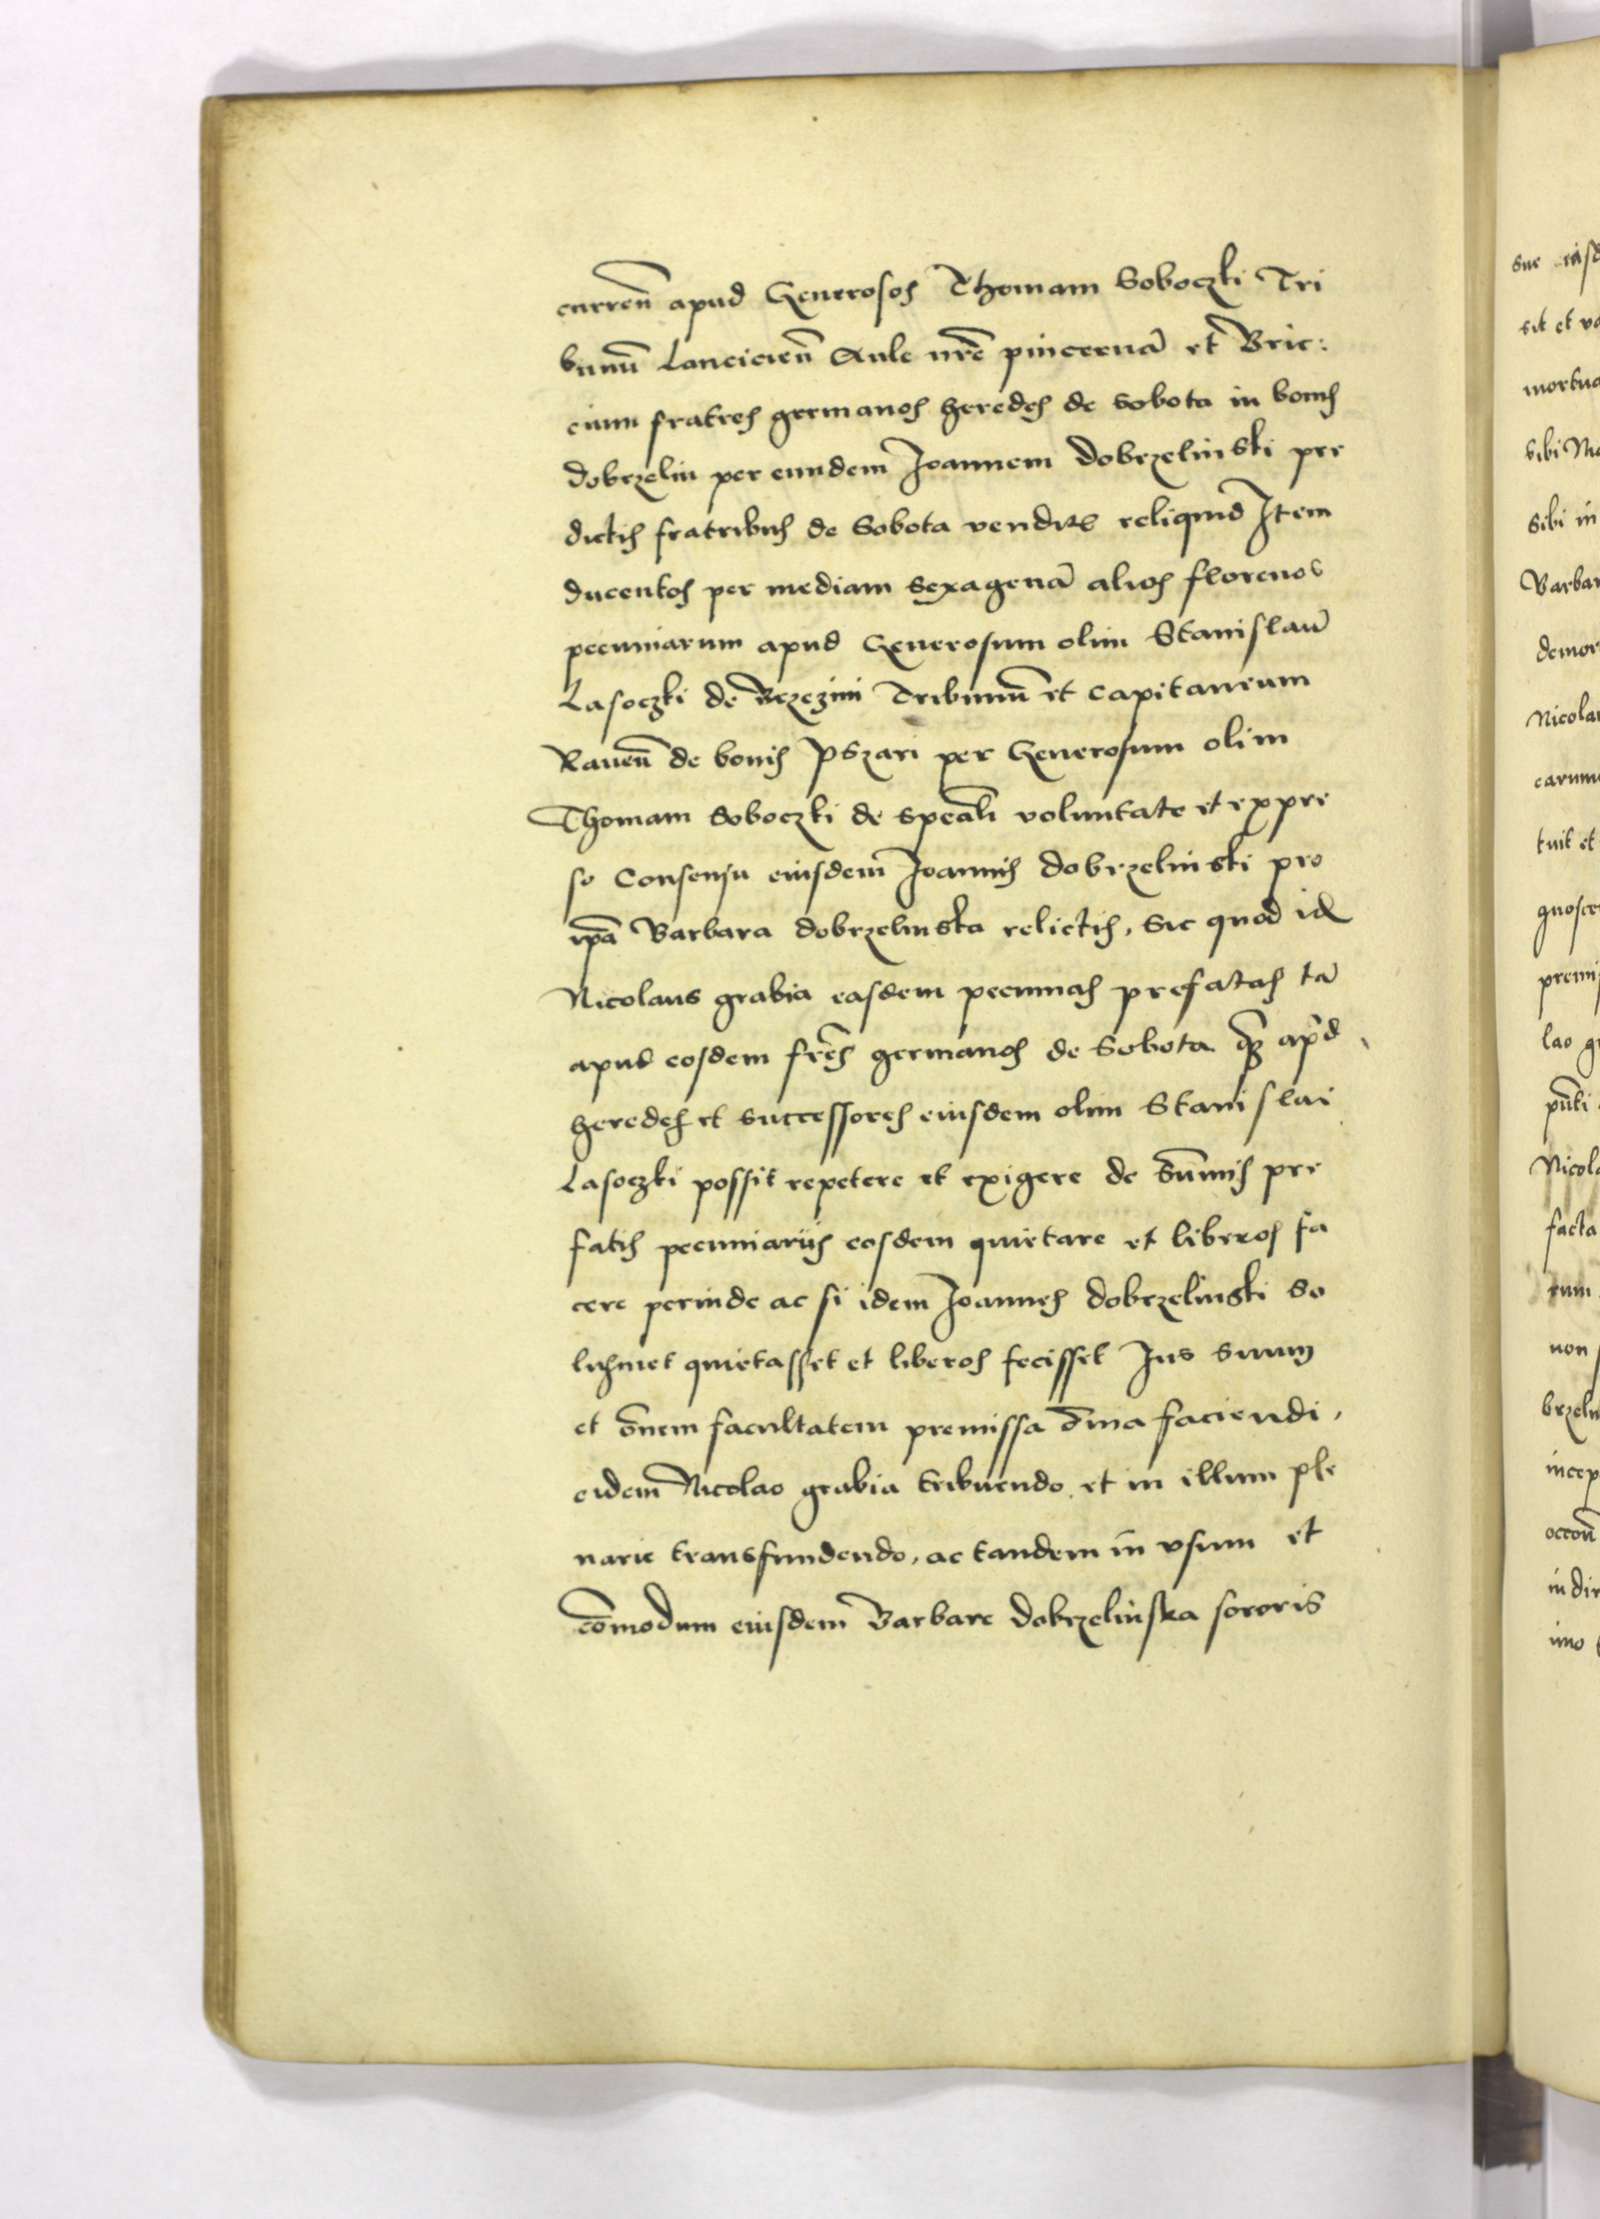 curreñ apud Generosos Thomam Soboczki Tri
bunū Lancicieñ Aule nrē pincernā et Bric:
cium fratres germanos heredes de Sobota in bonis
dobrzelin per eundem Joannem dobrzelinski pre
dictis fratribus de Sobota venditis reliquid Item
ducentos per mediam sexagenā alios florenos
pecuniarum apud Generosum olim Stanislaū
Lasoczki de Brzezini Tribunū et capitaneum
Raueñ de bonis pszari per Generosum olim
Thomam Soboczki de speāli voluntate et expre
so Consensu eiusdem Joannis dobrzelinski pro
ipā Barbara dobrzelinska relictis, sic quod id
Nicolaus grabia easdem pecunias prefatas tā
apud eosdem frēs germanos de Sobota qȝ apud
heredes et successores eiusdem olim Stanislai
Lasoczki possit repetere et exigere de sūmis pre
fatis pecuniariis eosdem quietare et liberos fa
cere perinde ac si idem Joannes dobrzelinski so
lusmet quietasset et liberos fecisset Jus suum
et ōnem facultatem premissa ōnia faciendi,
eidem Nicolao grabia tribuendo et in illum ple
narie transfundendo, ac tandem in vsum et
cōmodum eiusdem Barbare dobrzelinska sororis
sue
sit et
mortua
sibi
sibi in
Barbar
demor
Nicola
earum
tuit et
gnosce
premis
lao
Nicola
facta
eum
non
brzelin
incep
in dir
imo